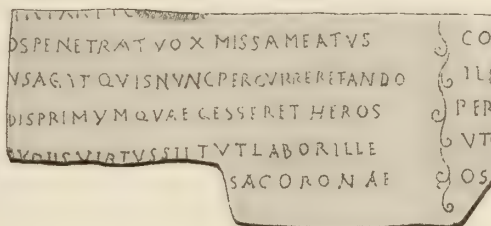 OSPENETRAT VOX MISSA MEATVS
VSAGIT QVISNVNCPERCVRREREFANDO
DISPRIMVM QVAE GESSERET HEROS
VIRTVSSIITVTLABORILLE
SACORONAE
CO
ILS
PER
VT
OS